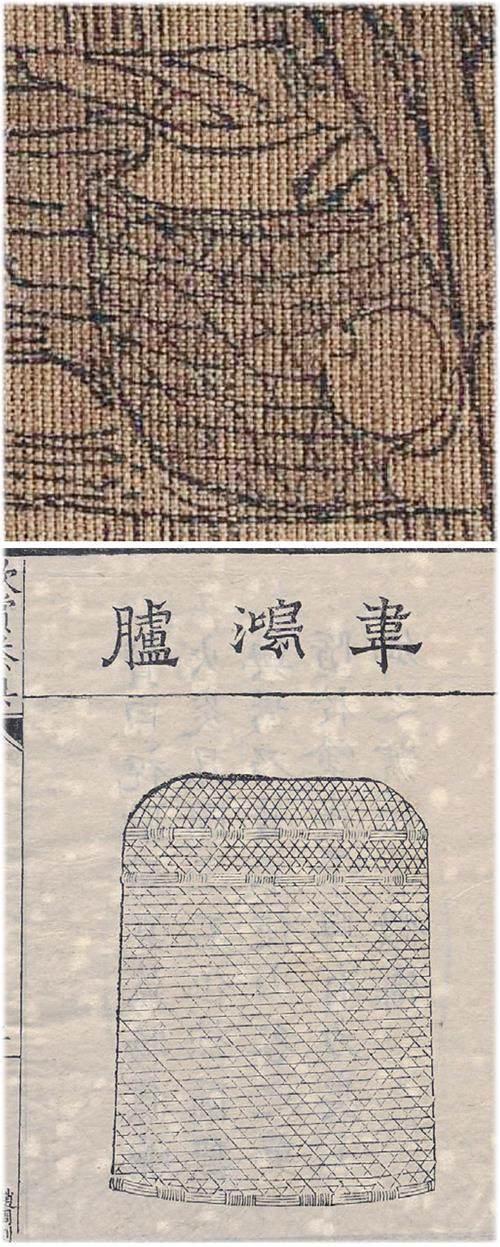 韋鴻臚